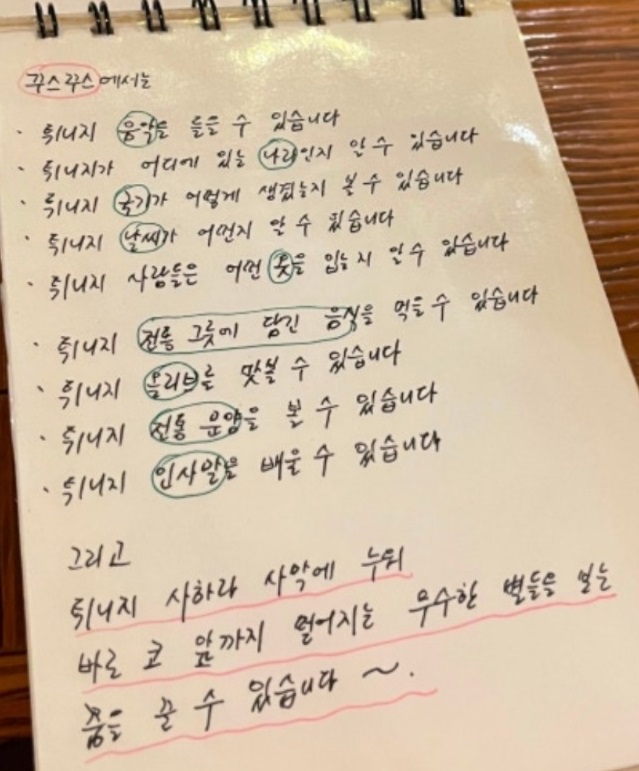 꾸스꾸스에서는
· 튀니지 음악을 들을 수 있습니다
· 튀니지가 어디에 있는 나라인지 알 수 있습니다
· 튀니지 국기가 어떻게 생겼는지 볼 수 있습니다
· 튀니지 날씨가 어떤지 알 수 있습니다
· 튀니지 사람들은 어떤 옷을 입는지 알 수 있습니다
· 튀니지 전통 그릇에 담긴 음식을 먹을 수 있습니다
· 튀니지 올리브를 맛볼 수 있습니다
· 튀니지 전통 문양을 볼 수 있습니다
· 튀니지 인사말을 배울 수 있습니다
그리고
튀니지 사하라 사막에 누워
바로 코 앞까지 떨어지는 무수한 별들을 보는
꿈을 꿀 수 있습니다 ~.